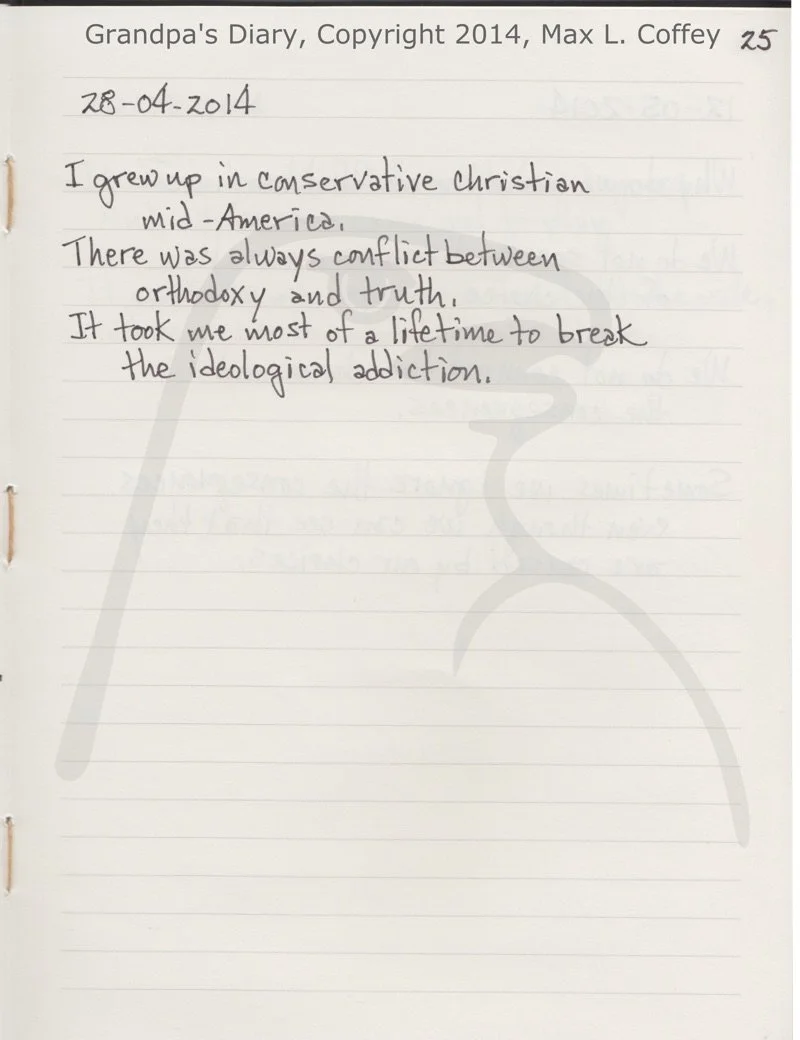 Grandpa's Diary, Copyright 2014, Max L. Coffey 25
28-04-2014
I grew up in conservative Christian
mid-America.
There was always conflict between
orthodoxy and truth.
It took me most of a lifetime to break
the ideological addiction.